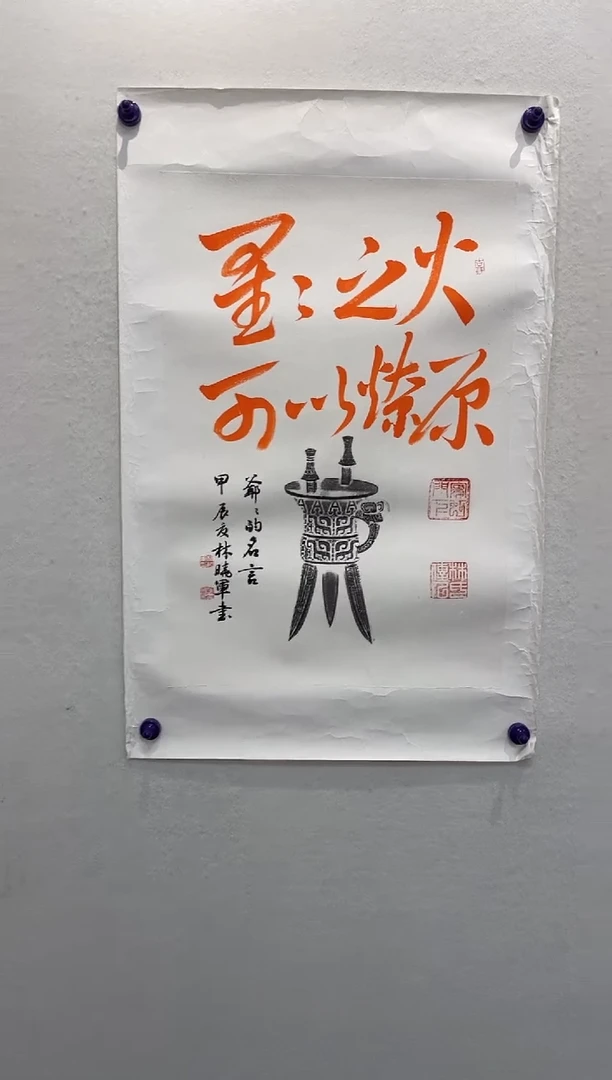 星〻之火
可以燎原
爺〻的名言
甲辰夏林曉軍書